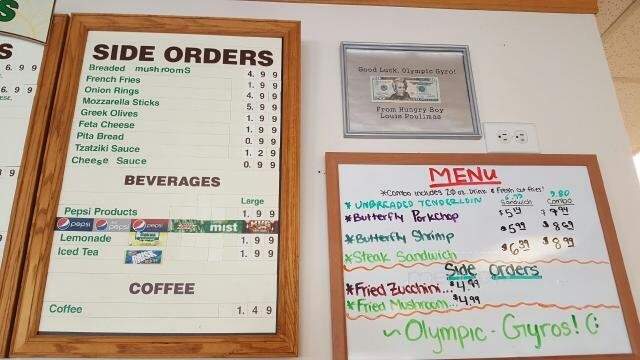 S
6.99
9.99
SIDE ORDERS
Breaded mushrooms 4.99
French Fries 1.99
Onion Rings 4.99
Mozzarella Sticks 5.99
Greek Olives 1.99
Feta Cheese 1.99
Pita Bread 0.99
Tzatziki Sauce 1.29
Cheese Sauce 0.99
BEVERAGES
Large
Pepsi Products 1.99
pepsi pepsi pepsi mist MUG
Lemonade 1.99
Iced Tea BRISK 1.99
COFFEE
Coffee 1.49
Good Luck, Olympic Gyro!
From Hungry Boy
Louis Poulimas
MENU
*Combo includes 20 oz. Drink & Fresh cut fries!
6.99 9.80
Sandwich Combo
*UNBREADED TENDERLOIN
*Butterfly Porkchop $5.49 $7.99
*Butterfly Shrimp $5.99 $8.69
*Steak Sandwich $6.39 $8.99
Side Orders
*Fried Zucchini... $4.99
*Fried Mushroom... $4.99
~Olympic-Gyros! (: